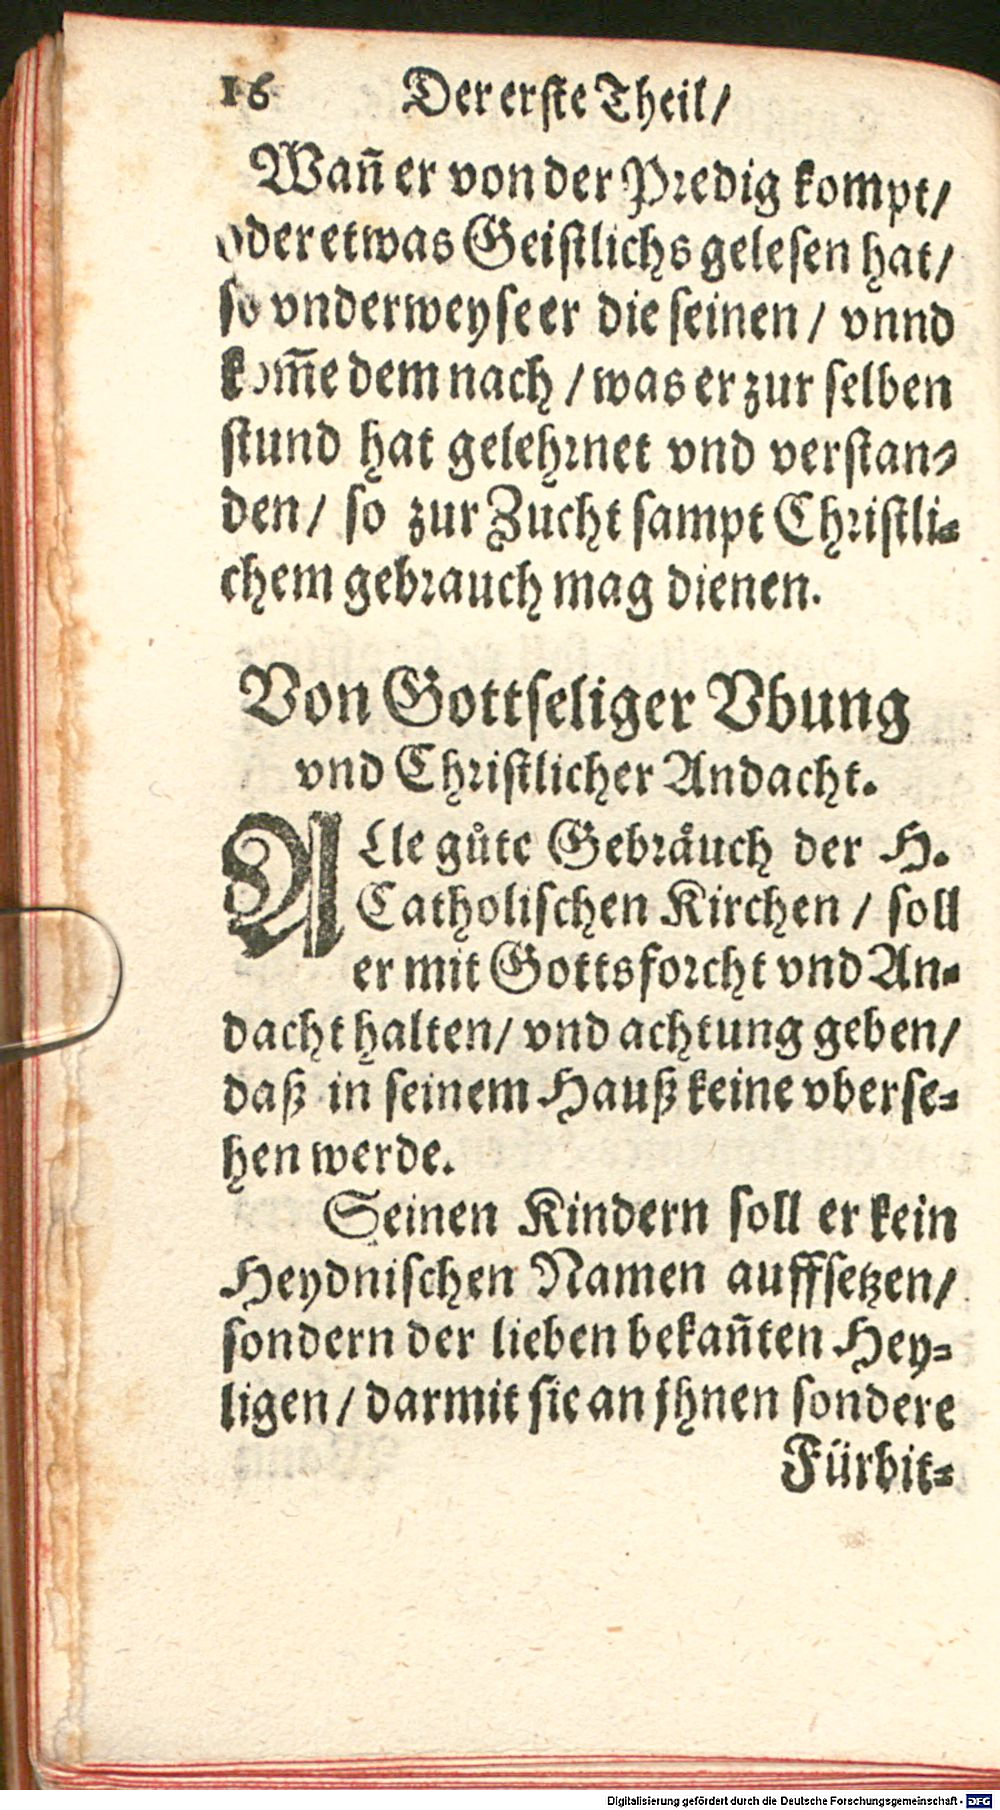 16 Der erste Theil/
Wañ er von der Predig kompt/
oder etwas Geistlichs gelesen hat/
so vnderweyse er die seinen / vnnd
kom̃e dem nach / was er zur selben
stund hat gelehrnet vnd verstan-
den/ so zur Zucht sampt Christli-
chem gebrauch mag dienen.
Von Gottseliger Vbung
vnd Christlicher Andacht.
ALle gůte Gebraͤuch der H.
Catholischen Kirchen / soll
er mit Gottsforcht vnd An-
dacht halten/ vnd achtung geben/
daß in seinem Hauß keine vberse-
hen werde.
Seinen Kindern soll er kein
Heydnischen Namen auffsetzen/
sondern der lieben bekañten Hey-
ligen / darmit sie an jhnen sondere
Fürbit-
Digitalisierung gefördert durch die Deutsche Forschungsgemeinschaft - DFG